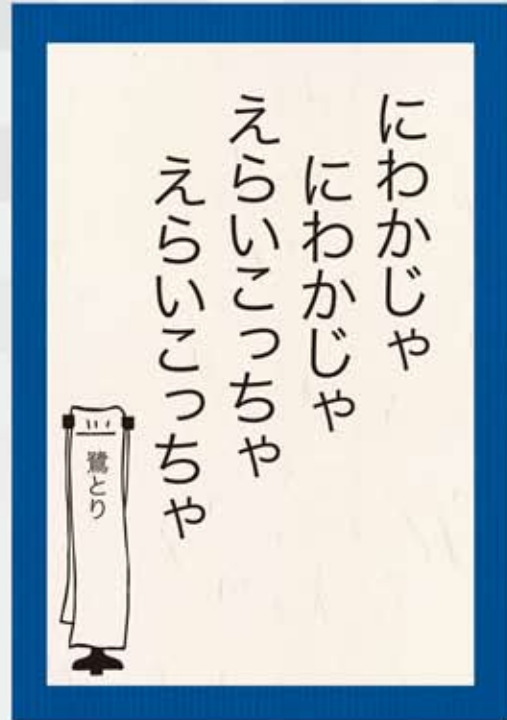 にわかじゃ
にわかじゃ
えらいこっちゃ
えらいこっちゃ
鷺とり